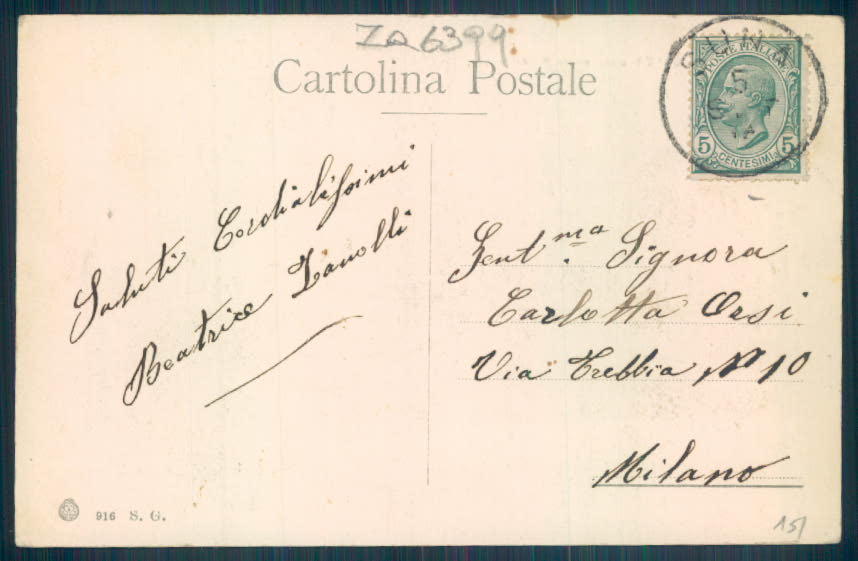 ZQ6399
Cartolina Postale
POSTE ITALIANE
5 5
CENTESIMI
Saluti Cordialissimi
Beatrice Zanolli
Gent.ma Signora
Carlotta Orsi
Via Trebbia N° 10
Milano
916 S. G.
15/